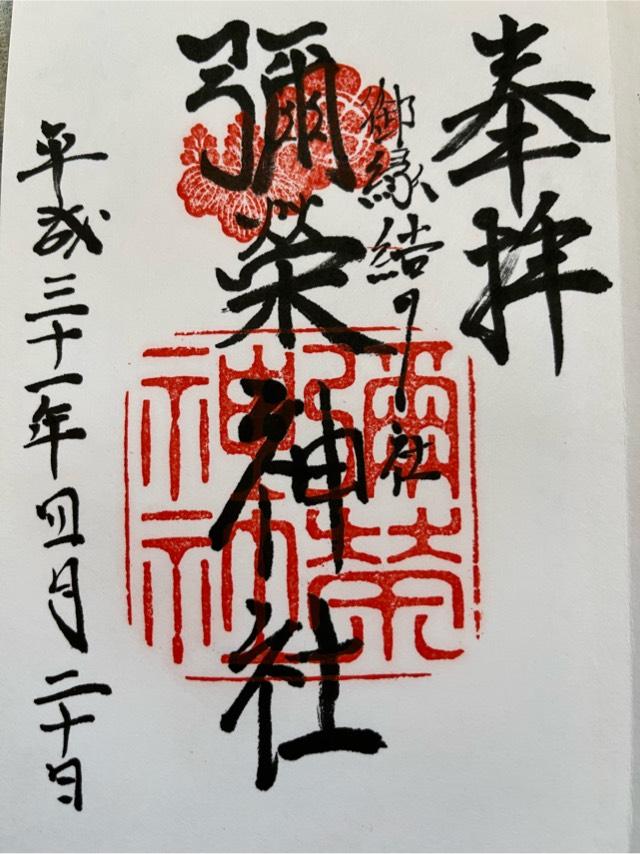 奉拝
御縁結び社
彌榮神社
彌榮神社
平成三十一年四月二十日